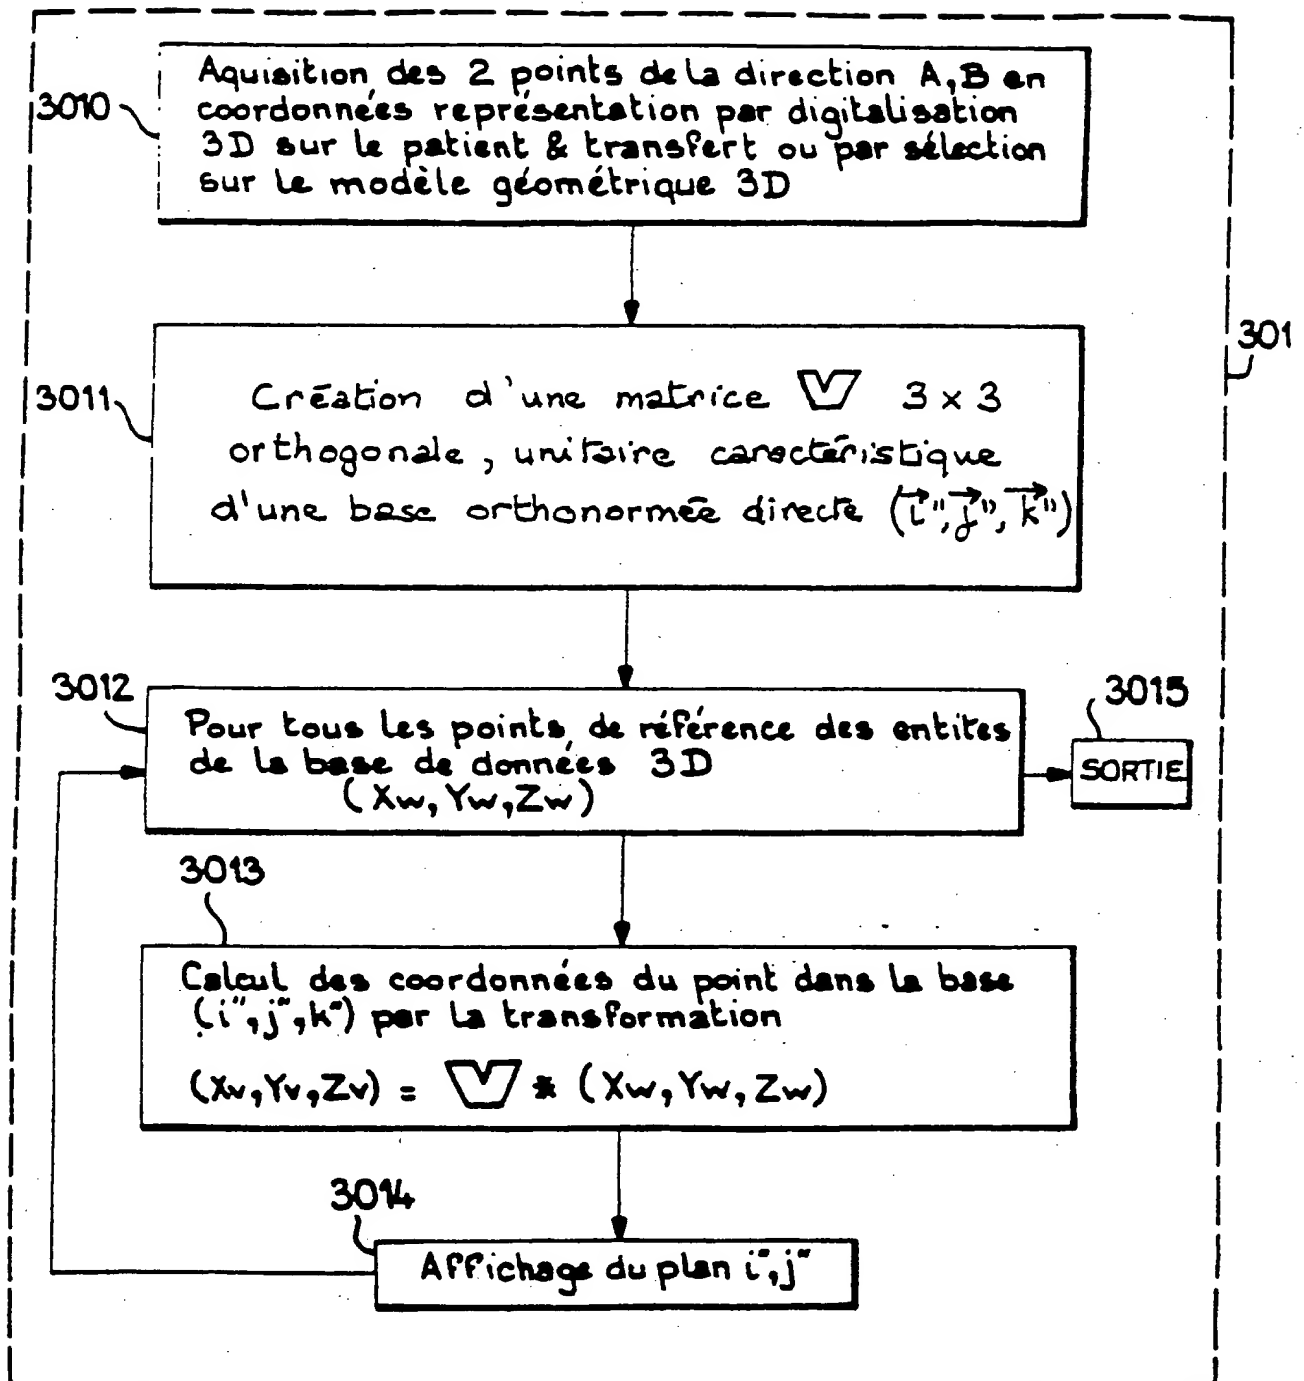 Aquisition des 2 points de la direction A,B en
3010
coordonnées représentation par digitalisation
3D sur le patient & transfert ou par sélection
sur le modèle géométrique 3D
301
3011
Création d'une matrice V 3 x 3
orthogonale, unitaire caractéristique
d'une base orthonormée directe (i", j", k")
3012
3015
Pour tous les points de référence des entites
de la base de données 3D
(Xw, Yw, Zw)
SORTIE
3013
Calcul des coordonnées du point dans la base
(i", j", k") par la transformation
(Xv, Yv, Zv) = V * (Xw, Yw, Zw)
3014
Affichage du plan i", j"